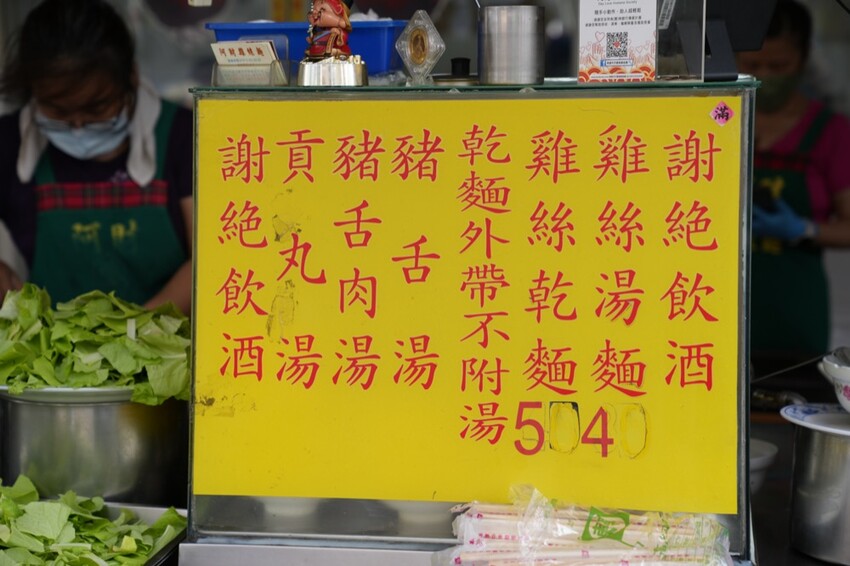 阿財雞絲麵
滿
謝絕飲酒
雞絲湯麵40
雞絲乾麵50
乾麵外帶不附湯
豬舌湯
豬舌肉湯
貢丸湯
謝絕飲酒
阿財